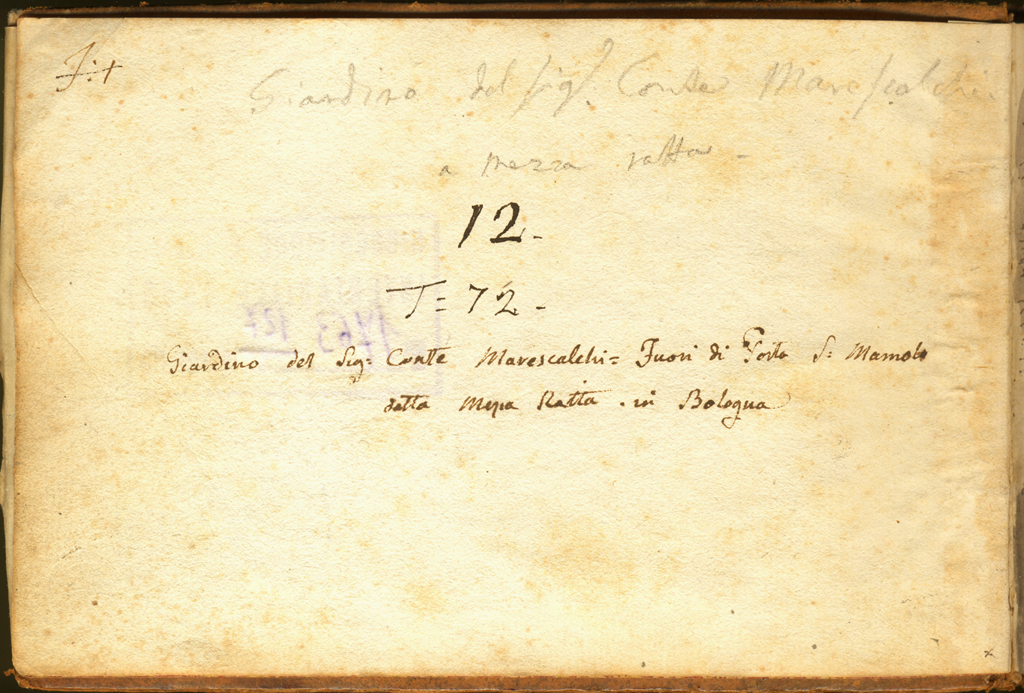 Giardino del Sig.r Conte Marescalchi
a mezza ratta -
12.-
T= 72-
Giardino del Sig= Conte Marescalchi= Fuori di Porta S= Mamolo
detta Meza Ratta . in Bologna
1763 127